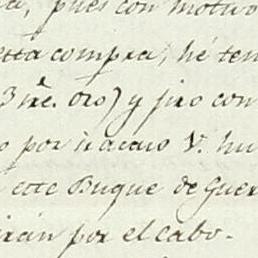 pues con motivo
compra, hé ten
oro) y giro con
por
este Buque de Guer
irán por el cabo.